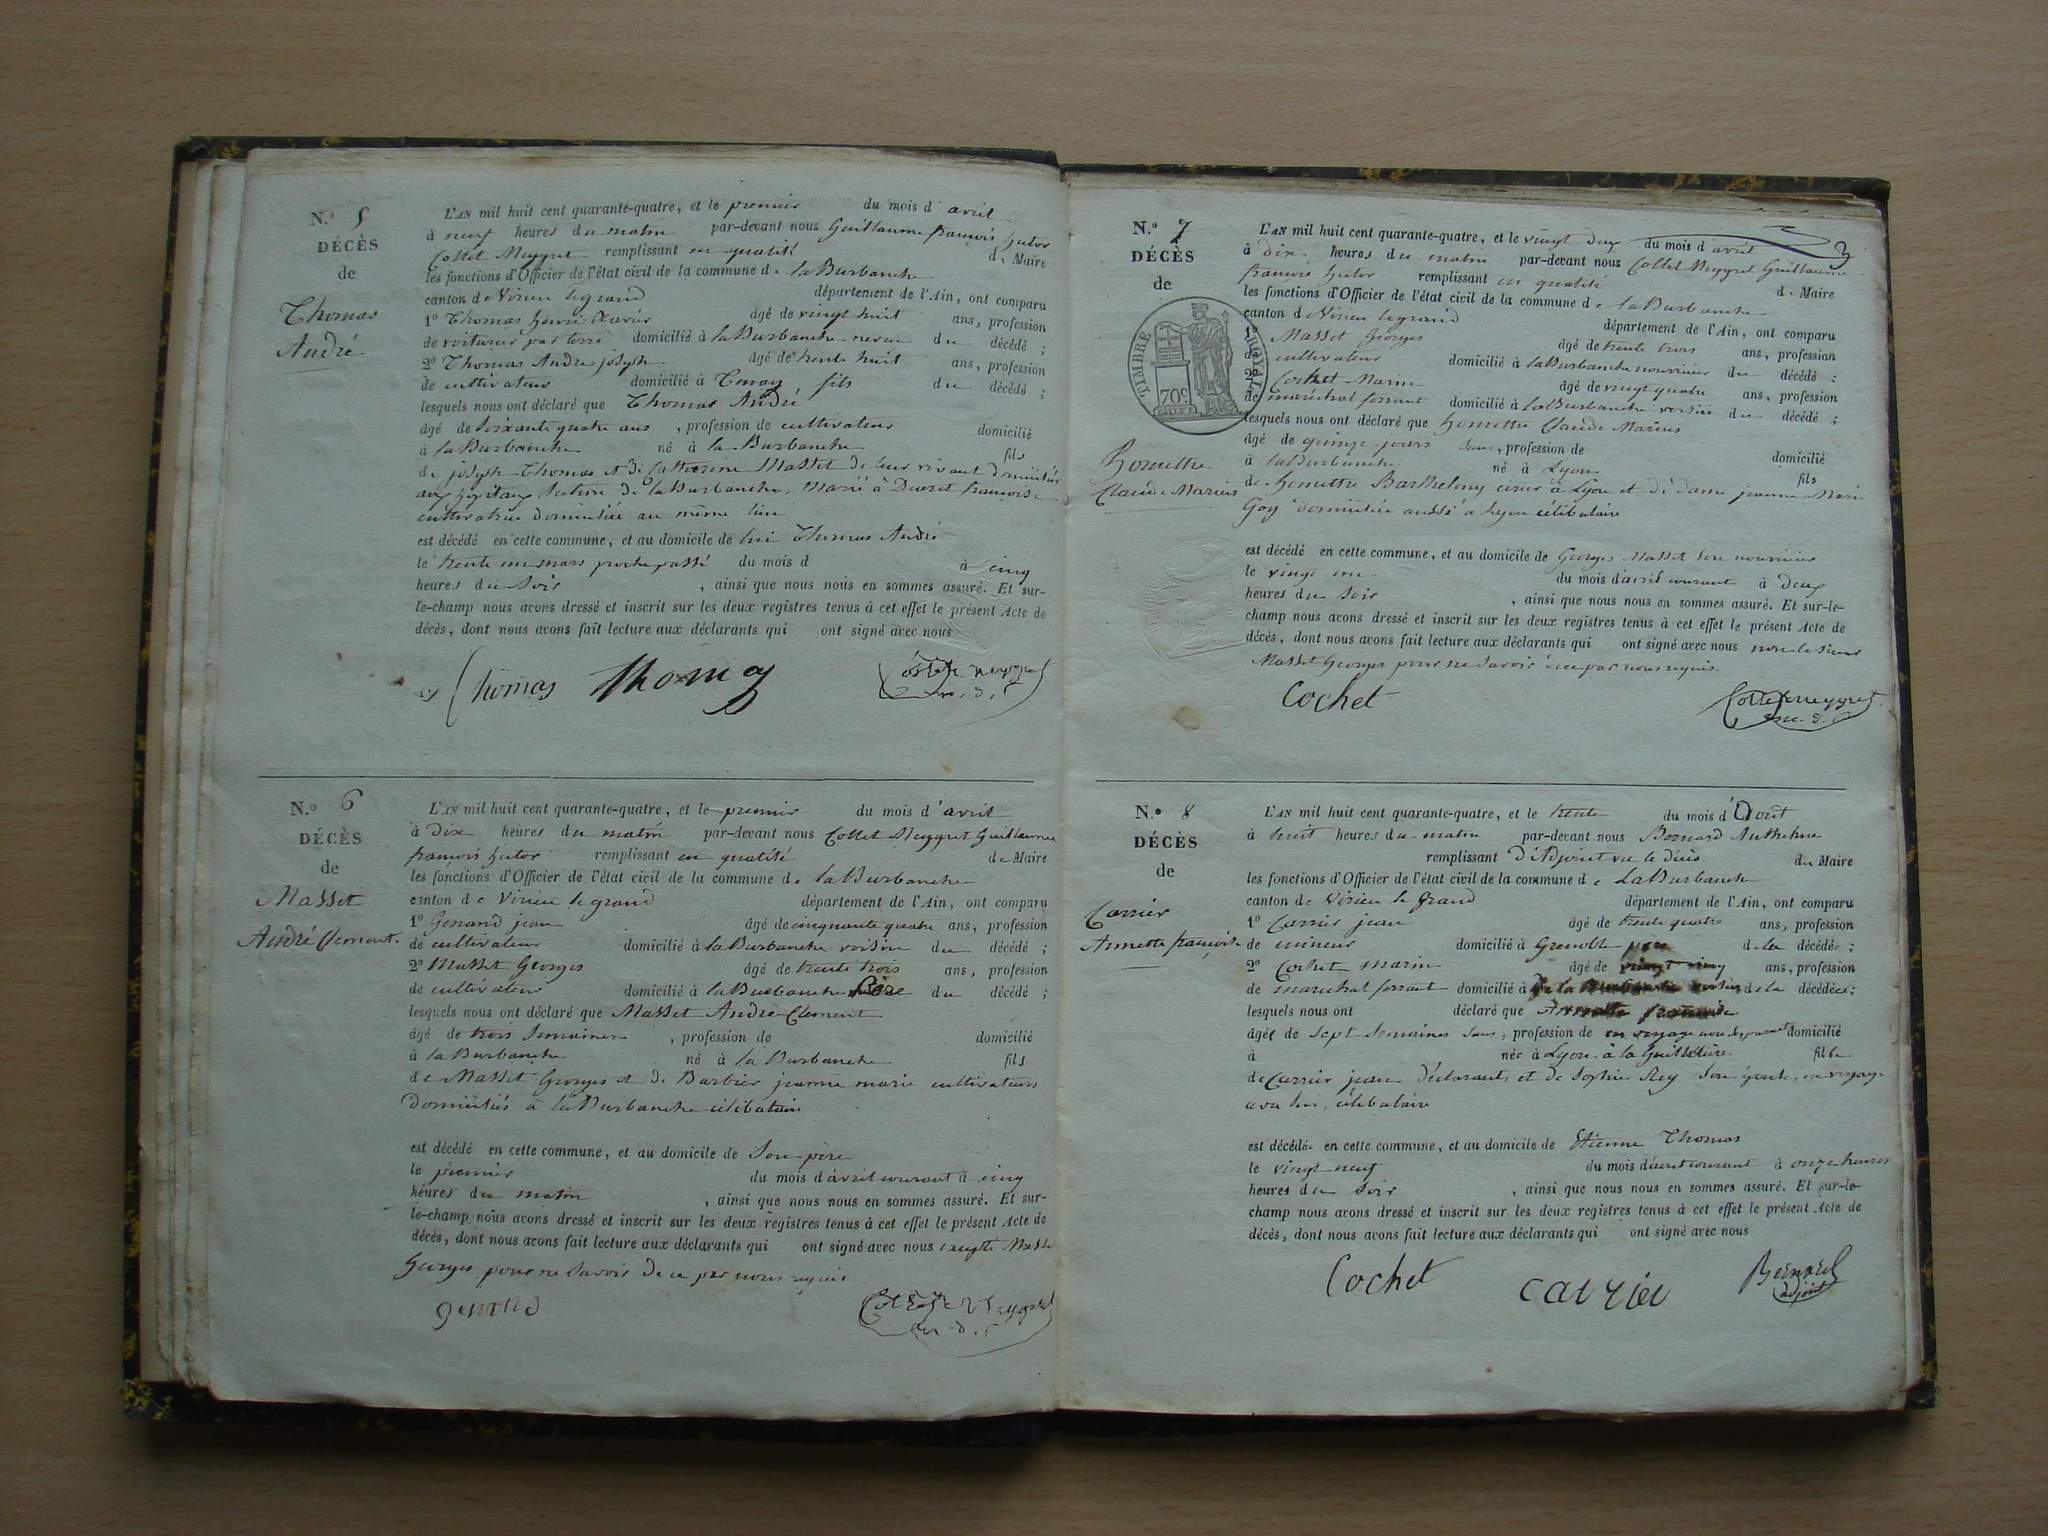 N.º 5
DÉCÈS
de
Thomas
André
L'AN mil huit cent quarante-quatre, et le premier du mois d'avril
à neuf heures du matin par-devant nous Guillaume françois hector
Collet Meygret remplissant en qualité de Maire
les fonctions d'Officier de l'état civil de la commune de la Burbanche
canton de Virieu legrand département de l'Ain, ont comparu
1º Thomas henri Xavier âgé de vingt huit ans, profession
de voiturier par terre domicilié à la Burbanche neveu du décédé ;
2º Thomas André joseph âgé de trente huit ans, profession
de cultivateur domicilié à Tenay, fils du décédé ;
lesquels nous ont déclaré que Thomas André
âgé de soixante quatre ans, profession de cultivateur domicilié
à la Burbanche né à la Burbanche fils
de joseph Thomas et de Catherine Masset de leur vivant domiciliés
aux hopitaux section de la Burbanche, Marié à Ducret françoise
cultivatrice domiciliée au même lieu
est décédé en cette commune, et au domicile de lui Thomas André
le trente un mars proche passé du mois d à cinq
heures du soir, ainsi que nous nous en sommes assuré. Et sur-
le-champ nous avons dressé et inscrit sur les deux registres tenus à cet effet le présent Acte de
décès, dont nous avons fait lecture aux déclarants qui ont signé avec nous
Thomas Thomas Collet Meygret
N.º 6
DÉCÈS
de
Masset
André Clement
L'AN mil huit cent quarante-quatre, et le premier du mois d'avril
à dix heures du matin par-devant nous Collet Meygret Guillaume
françois hector remplissant en qualité de Maire
les fonctions d'Officier de l'état civil de la commune de la Burbanche
canton de Virieu le grand département de l'Ain, ont comparu
1º jean âgé de cinquante quatre ans, profession
de cultivateur domicilié à la Burbanche voisin du décédé ;
2º Masset Georges âgé de trente trois ans, profession
de cultivateur domicilié à la Burbanche père du décédé ;
lesquels nous ont déclaré que Masset André Clement
âgé de trois semaines, profession de domicilié
à la Burbanche né à la Burbanche fils
de Masset Georges et de Barbier jeanne marie cultivateurs
domiciliés à la Burbanche célibataire
est décédé en cette commune, et au domicile de son père
le premier du mois d'avril courant à cinq
heures du matin, ainsi que nous nous en sommes assuré. Et sur-
le-champ nous avons dressé et inscrit sur les deux registres tenus à cet effet le présent Acte de
décès, dont nous avons fait lecture aux déclarants qui ont signé avec nous excepté Masset
Georges pour ne savoir de ce par nous requis
Collet Meygret
N.º 7
DÉCÈS
de
TIMBRE ROYAL
70c
Homettre
Claude Marius
L'AN mil huit cent quarante-quatre, et le vingt deux du mois d'avril
à dix heures du matin par-devant nous Collet Meygret Guillaume
françois hector remplissant en qualité de Maire
les fonctions d'Officier de l'état civil de la commune de la Burbanche
canton de Virieu legrand département de l'Ain, ont comparu
1º Masset Georges âgé de trente trois ans, profession
de cultivateur domicilié à la Burbanche nourricier du décédé ;
2º Cochet Marin âgé de vingt quatre ans, profession
de maréchal ferrant domicilié à la Burbanche voisin du décédé ;
lesquels nous ont déclaré que homettre Claude Marius
âgé de quinze jours, profession de domicilié
à la Burbanche né à Lyon fils
de homettre Barthelemy à Lyon et de dame jeanne Marie
Goy domiciliée aussi a Lyon célibataire
est décédé en cette commune, et au domicile de Georges Masset son nourricier
le vingt un du mois d'avril courant à deux
heures du soir, ainsi que nous nous en sommes assuré. Et sur-le-
champ nous avons dressé et inscrit sur les deux registres tenus à cet effet le présent Acte de
décès, dont nous avons fait lecture aux déclarants qui ont signé avec nous non le sieur
Masset Georges pour ne savoir de ce par nous requis.
Cochet Collet Meygret
N.º 8
DÉCÈS
de
Carrier
Annette françoise
L'AN mil huit cent quarante-quatre, et le trente du mois d'Aout
à huit heures du matin par-devant nous Bernard Anthelme
remplissant d'Adjoint vu le décès du Maire
les fonctions d'Officier de l'état civil de la commune de La Burbanche
canton de Virieu le Grand département de l'Ain, ont comparu
1º Carrier jean âgé de trente quatre ans, profession
de mineur domicilié à Grenoble père de la décédée ;
2º Cochet marin âgé de vingt cinq ans, profession
de marechal ferrant domicilié à de la Burbanche voisin de la décédée ;
lesquels nous ont déclaré que Annette françoise
âgée de sept semaines, profession de en voyage domicilié
à née à Lyon à la Guillotière fille
de Carrier jean déclarant, et de Sophie Rey son épouse, en voyage
avec lui, célibataire
est décédée en cette commune, et au domicile de Etienne Thomas
le vingt neuf du mois d'aout courant à onze heures
heures du soir, ainsi que nous nous en sommes assuré. Et sur-le-
champ nous avons dressé et inscrit sur les deux registres tenus à cet effet le présent Acte de
décès, dont nous avons fait lecture aux déclarants qui ont signé avec nous
Cochet carrier Bernard
adjoint